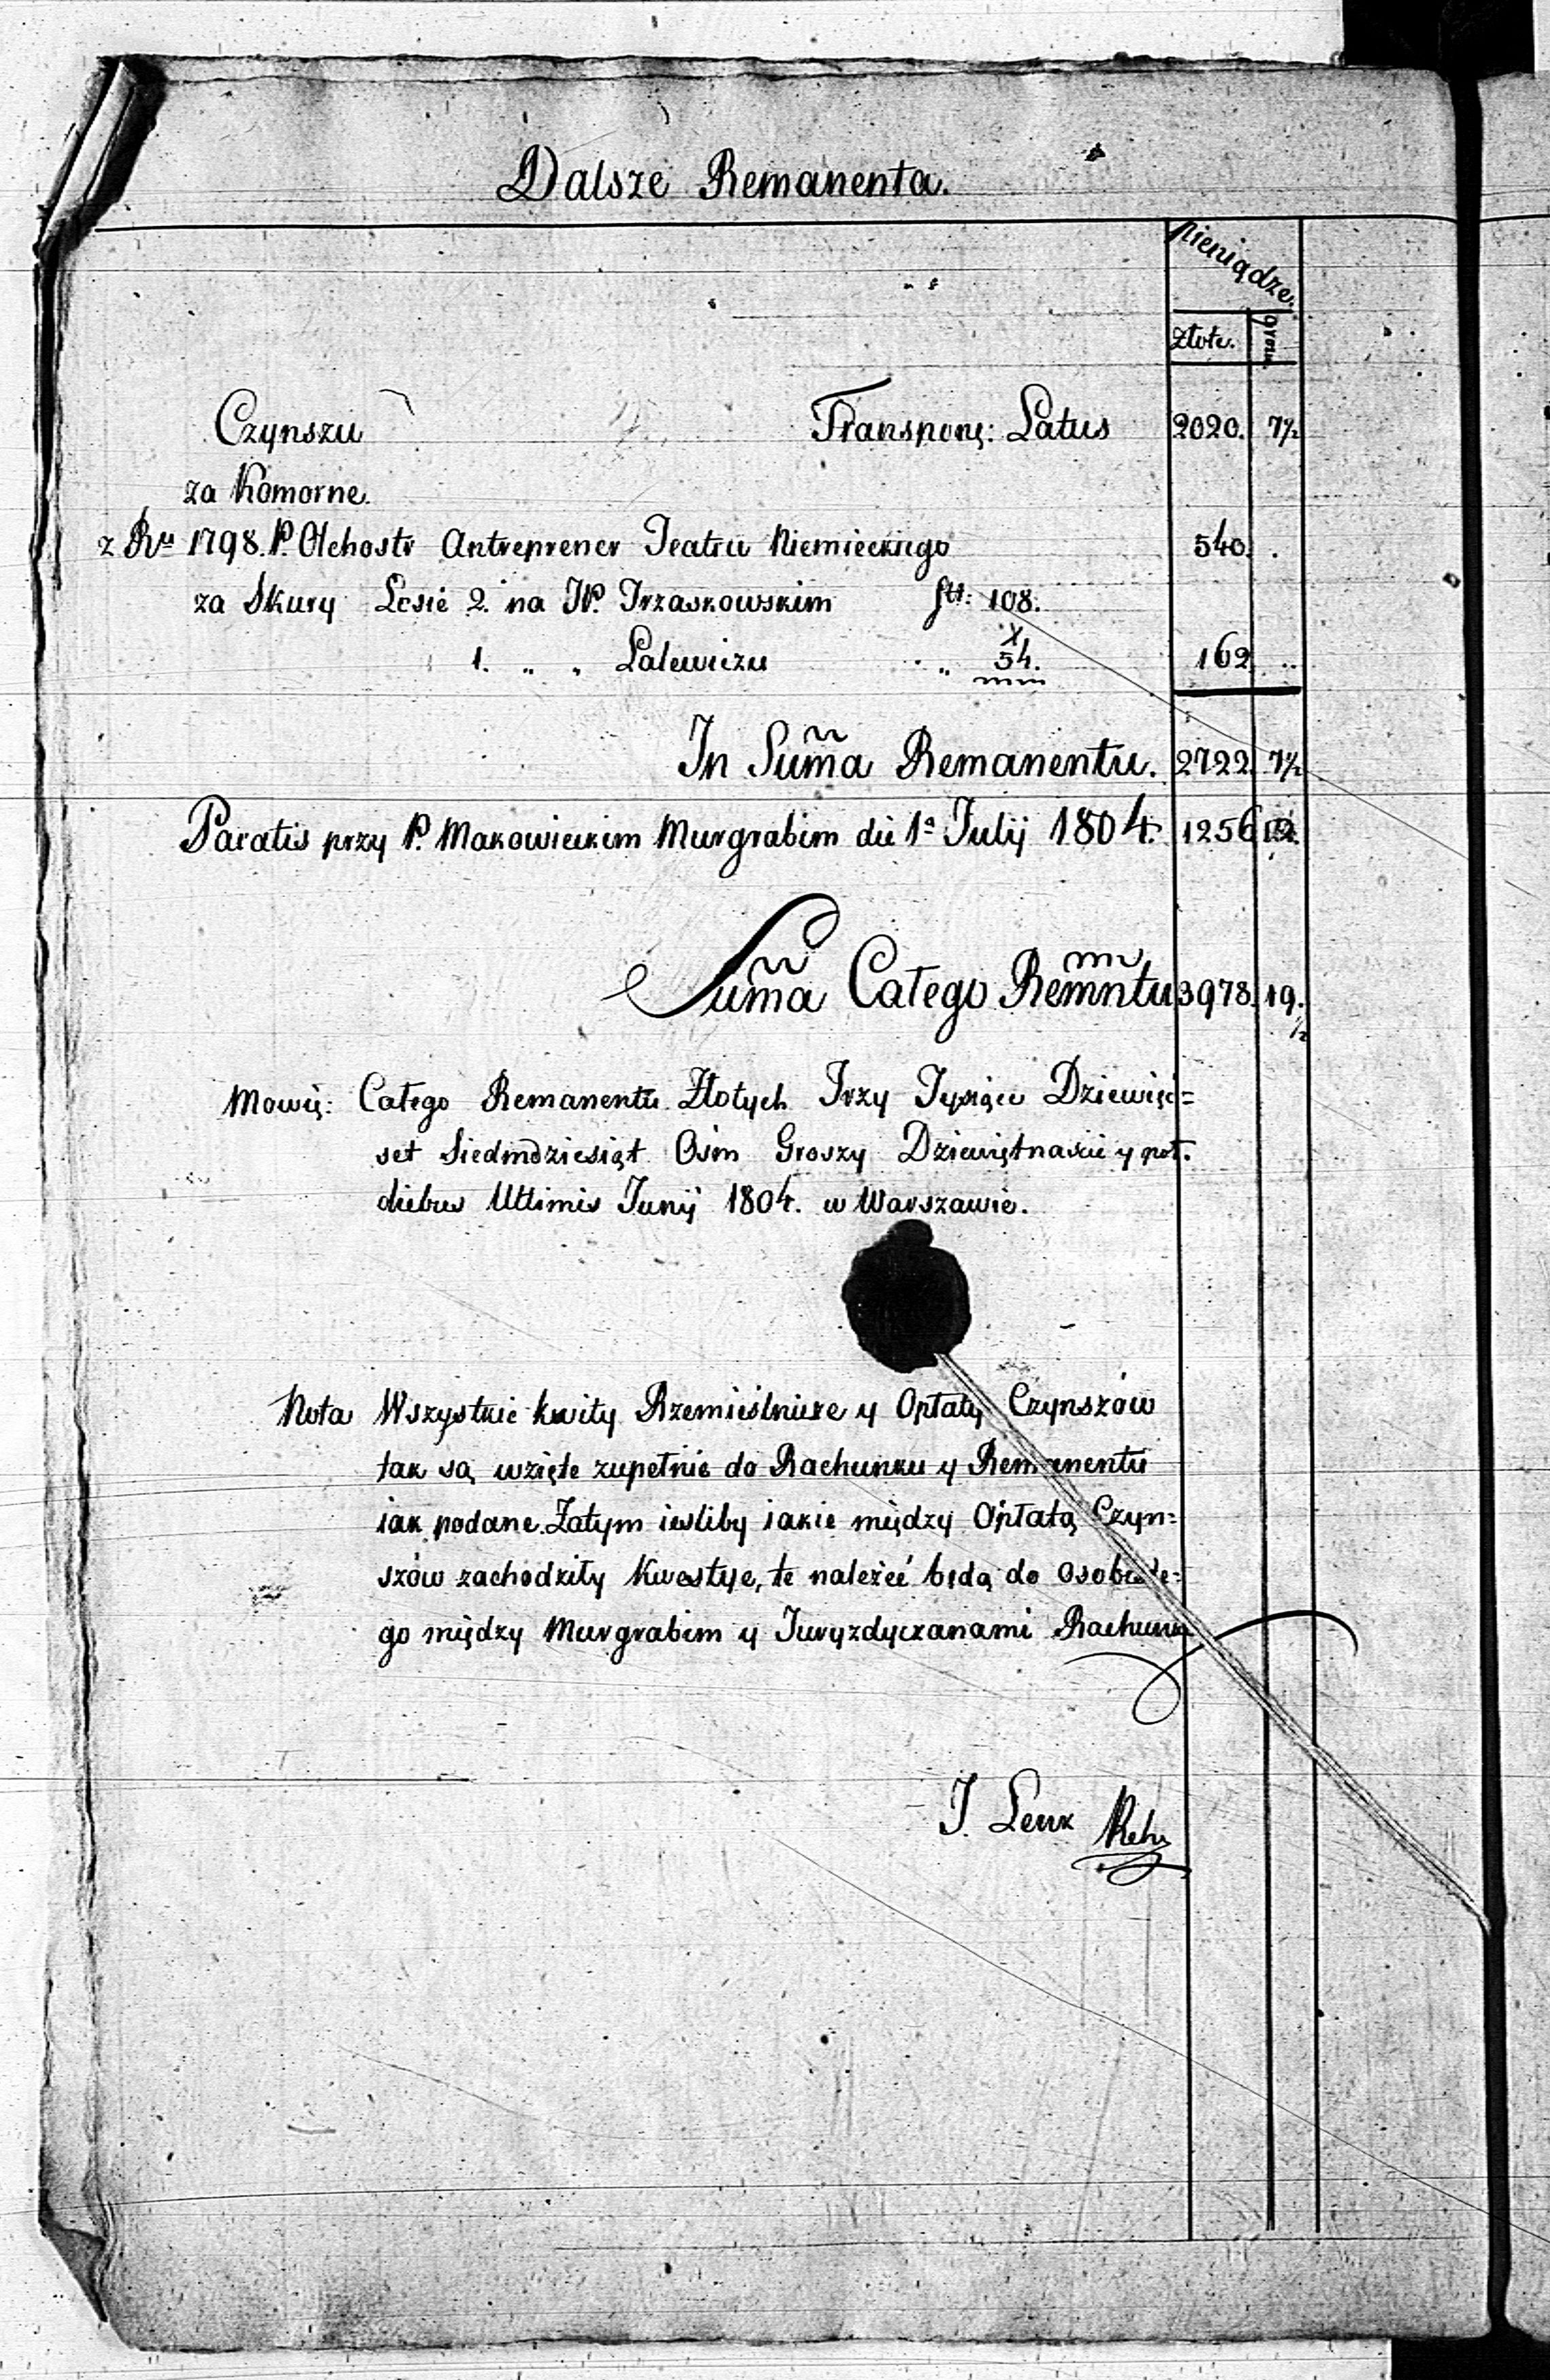 Dalsze Remanenta.
pieniądze.
złote. grosz.
Czynszu Transponę: Latus 2020. 7½
za Komorne.
z Ru 1798. P. Olchostr Antreprener Teatru Niemieckiego 540. .
za Skury Lesie 2. na JP. Trzaskowskim ftt: 108.
1. „ „ Lalewiczu „ 54. 162 ..
In Sum̃a Remanentu. 2722. 7½
Paratis przy P. Makowieckim Murgrabim die 1a Julij 1804. 1256 12.
Sum̃a Całego Rem̃ntu 3978. 19.½
Mowię: Całego Remanentu Złotych Trzy Tysiące Dziewięć=
set Siedmdziesiąt Ośm Groszy Dziewiętnaście y poł.
diebus Ultimis Junij 1804. w Warszawie.
Nota Wszystkie kwity Rzemieślnicze y Opłaty Czynszów
tak są wzięte zupełnie do Rachunku y Remanentu
iak podane. Zatym iesliby iakie między Opłatą Czyn=
szów zachodziły Kwestye, te należeć będą do osobiste=
go między Murgrabim y Juryzdyczanami Rachunku
J. Leux